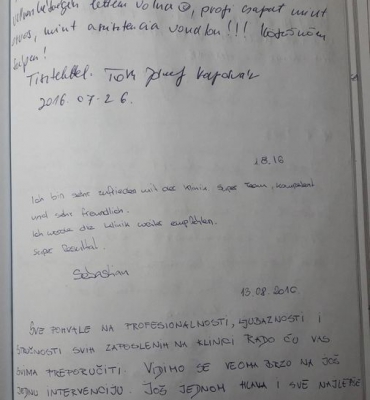 lettem volna, profi csapat mint
orvos, mint asszisztencia vonalon!!! Köszönöm
szépen!
Tisztelettel. Tóth József
2016 07-26.
18.16
Ich bin sehr zufrieden mit der Klinik Super Team, kompetent
und sehr freundlich.
Ich werde die Klinik weiter empfehlen.
Super Resultat.
Sebastian
13.08.2016.
SVE POHVALE NA PROFESIONALNOSTI, LJUBAZNOSTI I
STRUČNOSTI SVIH ZAPOSLENIH NA KLINICI RADO ĆU VAS
SVIMA PREPORUČITI. VIDIMO SE VEOMA BRZO NA JOŠ
JEDNU INTERVENCIJU. JOŠ JEDNOM HVALA I SVE NAJLEPŠE